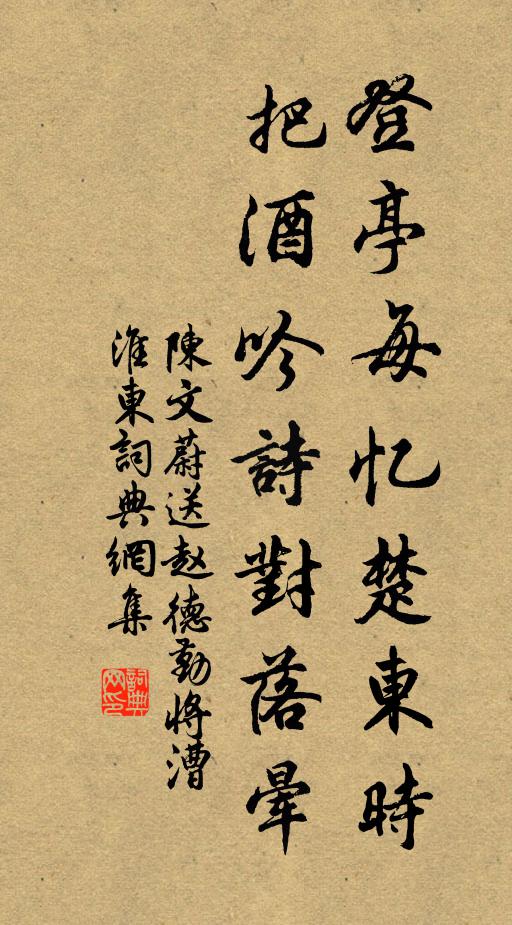 登亭每忆楚東時
把酒吟詩對落暈
陳文蔚送赵德勤將漕
淮東詞典網集
詞典网印